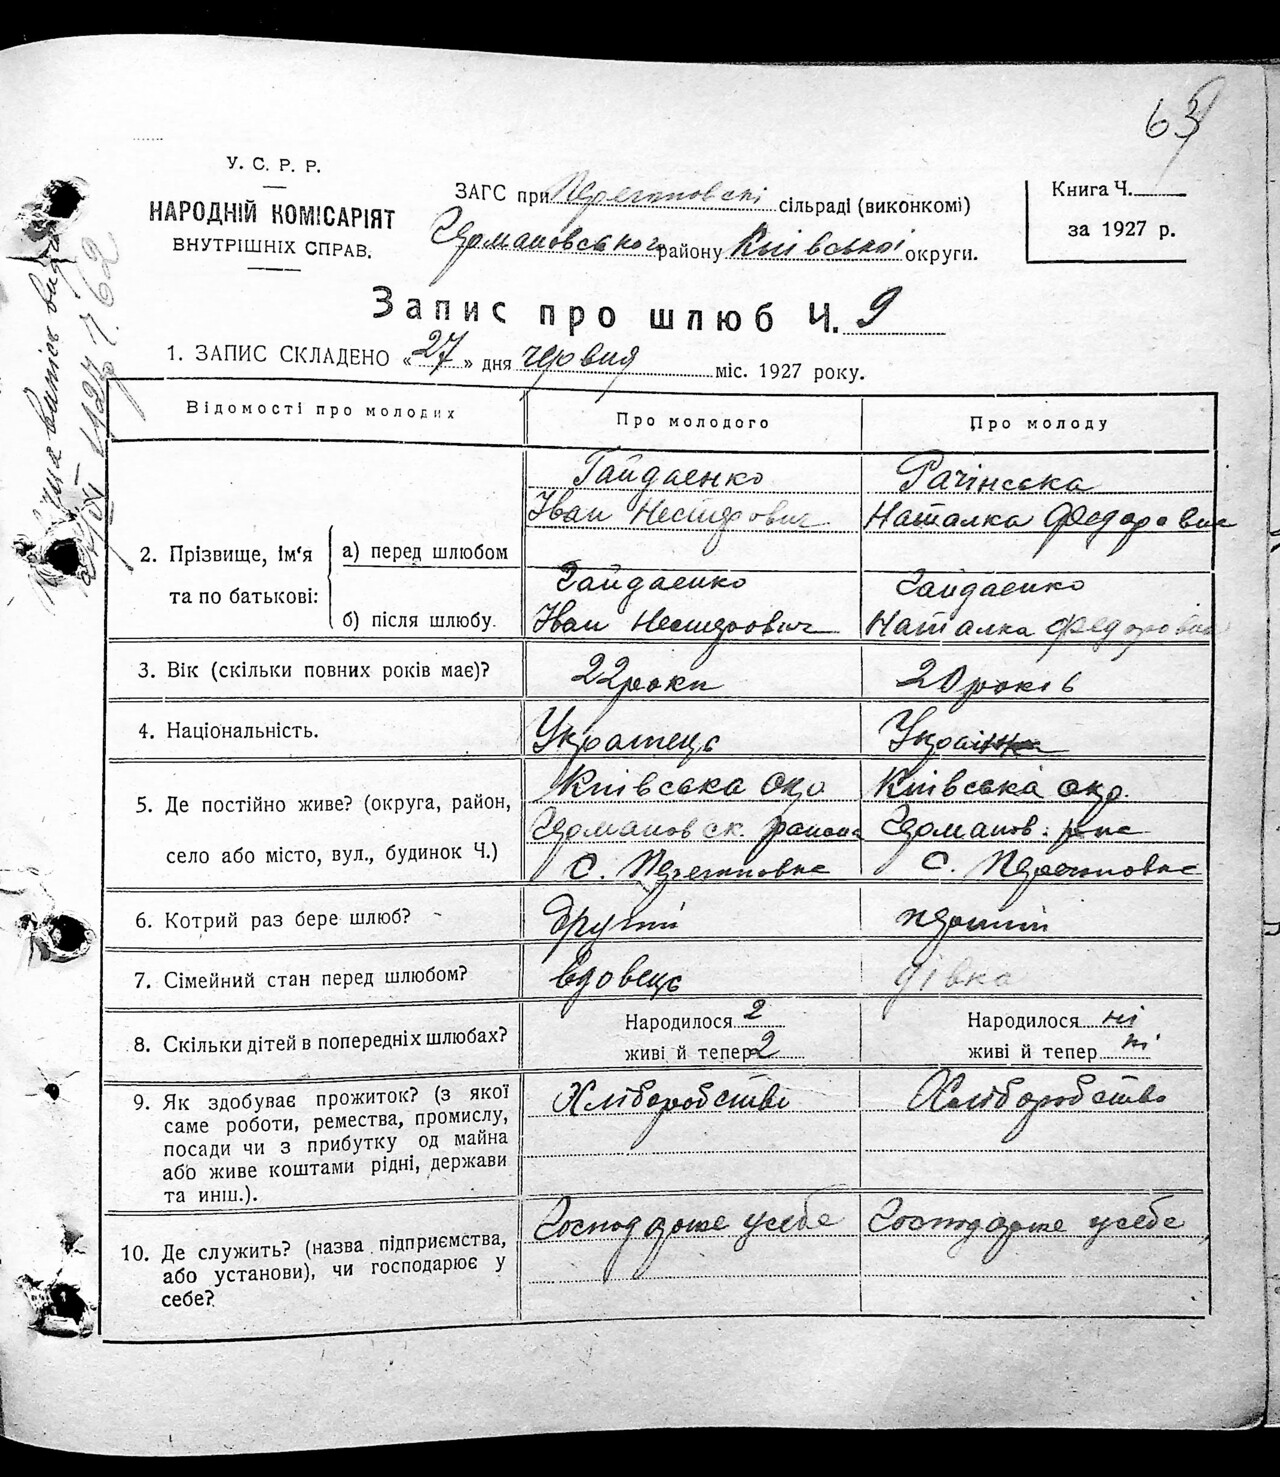 63
У. С. Р. Р.
НАРОДНІЙ КОМІСАРІЯТ
ВНУТРІШНІХ СПРАВ.
ЗАГС при сільраді (виконкомі)
району Київської округи.
Книга Ч.
за 1927 р.
Запис про шлюб Ч. 9
1. ЗАПИС СКЛАДЕНО «27» дня червня міс. 1927 року.
Відомості про молодих
Про молодого
Про молоду
2. Прізвище, ім'я та по батькові:
а) перед шлюбом
Гайдаенко
Іван Нестерович
Рачінська
Наталка Федоровна
б) після шлюбу.
Гайдаенко
Іван Нестерович
Гайдаенко
Наталка Федоровна
3. Вік (скільки повних років має)?
22 роки
20 років
4. Національність.
Українець
5. Де постійно живе? (округа, район,
село або місто, вул., будинок Ч.)
Київська окр
района
с.
Київська окр.
с.
6. Котрий раз бере шлюб?
другий
перший
7. Сімейний стан перед шлюбом?
вдовець
дівка
8. Скільки дітей в попередніх шлюбах?
Народилося 2
живі й тепер 2
Народилося ні
живі й тепер ні
9. Як здобуває прожиток? (з якої
саме роботи, ремества, промислу,
посади чи з прибутку од майна
або живе коштами рідні, держави
та инш.).
Хліборобство
Хліборобство
10. Де служить? (назва підприємства,
або установи), чи господарює у
себе?
Господарює у себе
Господарює у себе